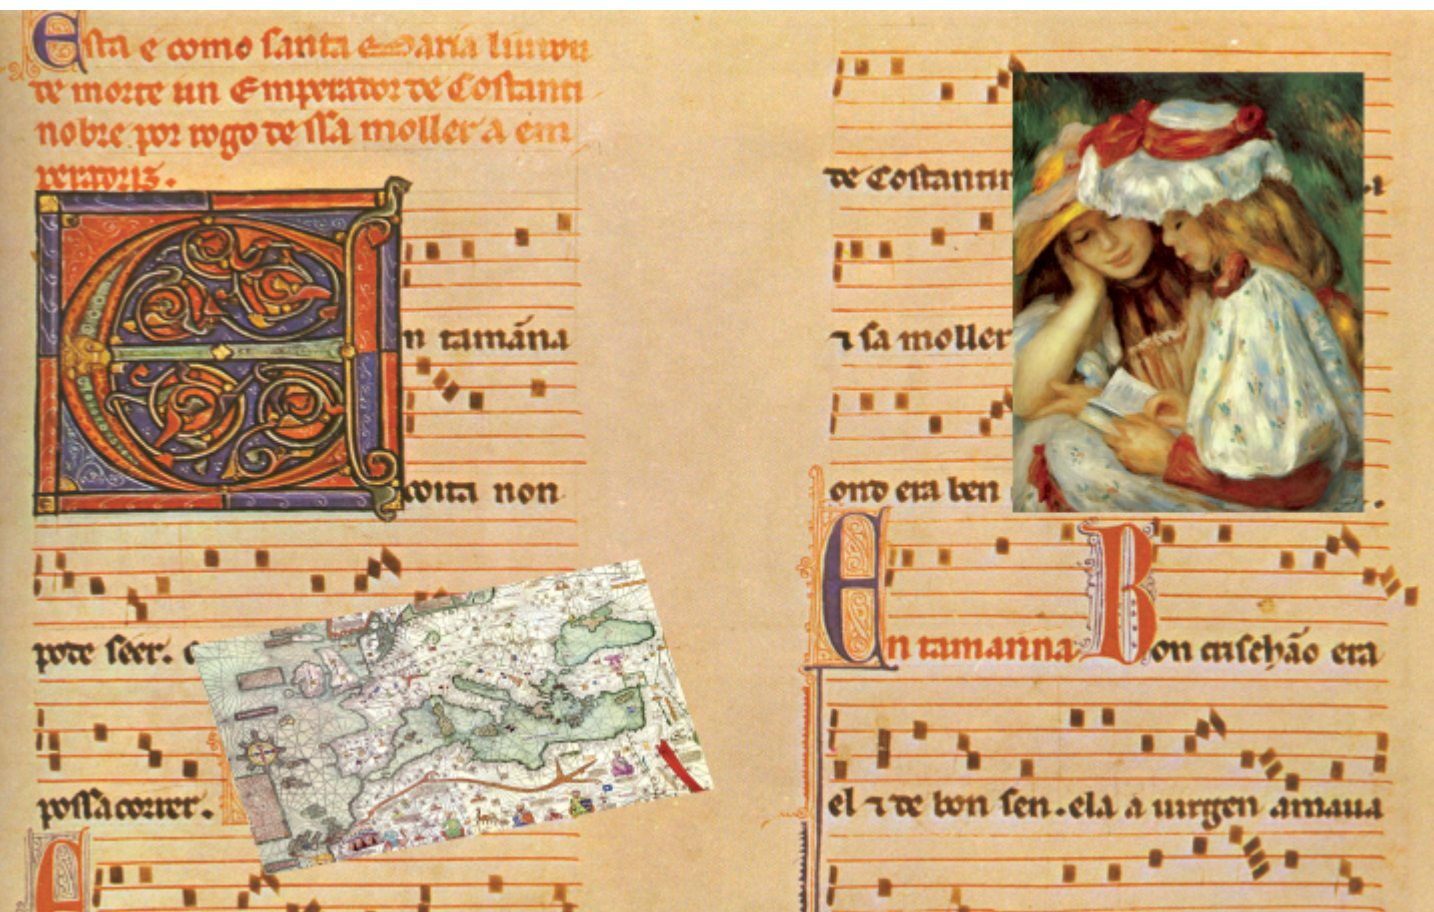 Esta e como santa Maria liurou
de morte un Emperador de Costanti
nobre por rogo de ssa moller a em
peradriz.
En tamãna
coita non
pode séer.
possa correr.
de Costantin
⁊ sa moller
ond era ben
En tamanna Bon crischão era
el ⁊ de bon sen. ela a uirgen amaua